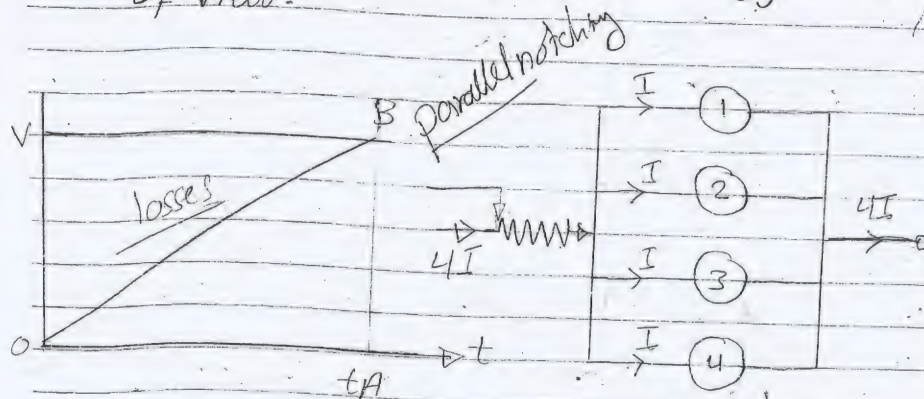 of
parallel notching
V
B
losses
4I
O
t
tA
I
1
I
2
I
3
I
4
4I